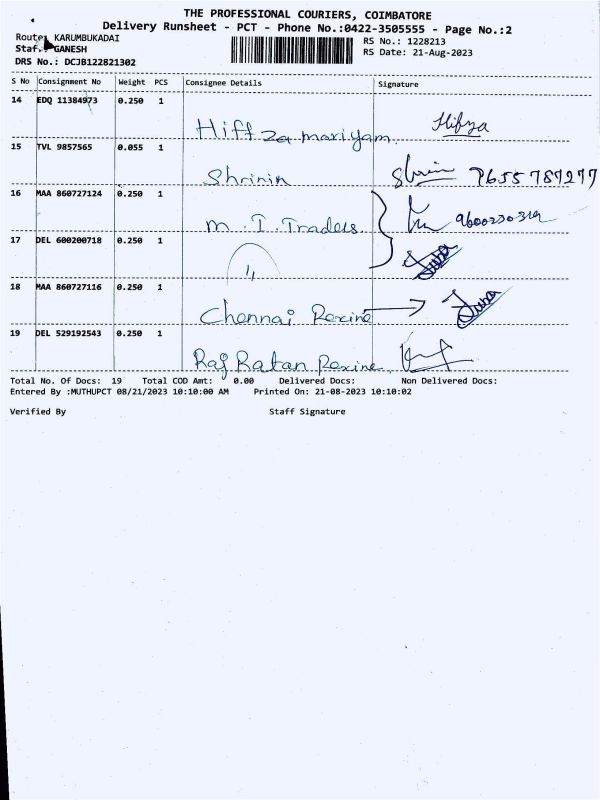 THE PROFESSIONAL COURIERS, COIMBATORE
Delivery Runsheet - PCT - Phone No.:0422-3505555 - Page No.:2
Route: KARUMBUKADAI
Staf.: GANESH
DRS No.: DCJB122821302
RS No.: 1228213
RS Date: 21-Aug-2023
S No Consignment No Weight PCS Consignee Details Signature
14 EDQ 11384973 0.250 1 Hiffza mariyam Hifza
15 TVL 9857565 0.055 1 Shrinin
16 MAA 860727124 0.250 1 M.I.Traders
17 DEL 600200718 0.250 1 "
18 MAA 860727116 0.250 1 Chennai Rexine
19 DEL 529192543 0.250 1 Raj Ratan Rexine
Total No. Of Docs: 19 Total COD Amt: 0.00 Delivered Docs: Non Delivered Docs:
Entered By :MUTHUPCT 08/21/2023 10:10:00 AM Printed On: 21-08-2023 10:10:02
Verified By Staff Signature